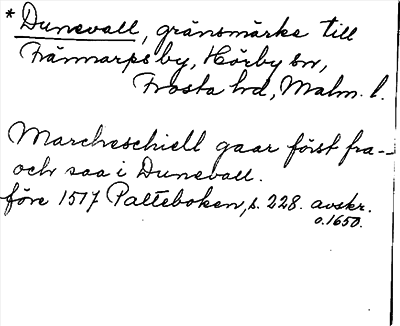 * Dunevall, gränsmärke till
Främmarps by, Hörby sn,
Frosta hd, Malm. l.
Marcheschiell gaar först fra-
och saa i Dunevall.
före 1517 Palteboken, s. 228. avskr.
o.1650.